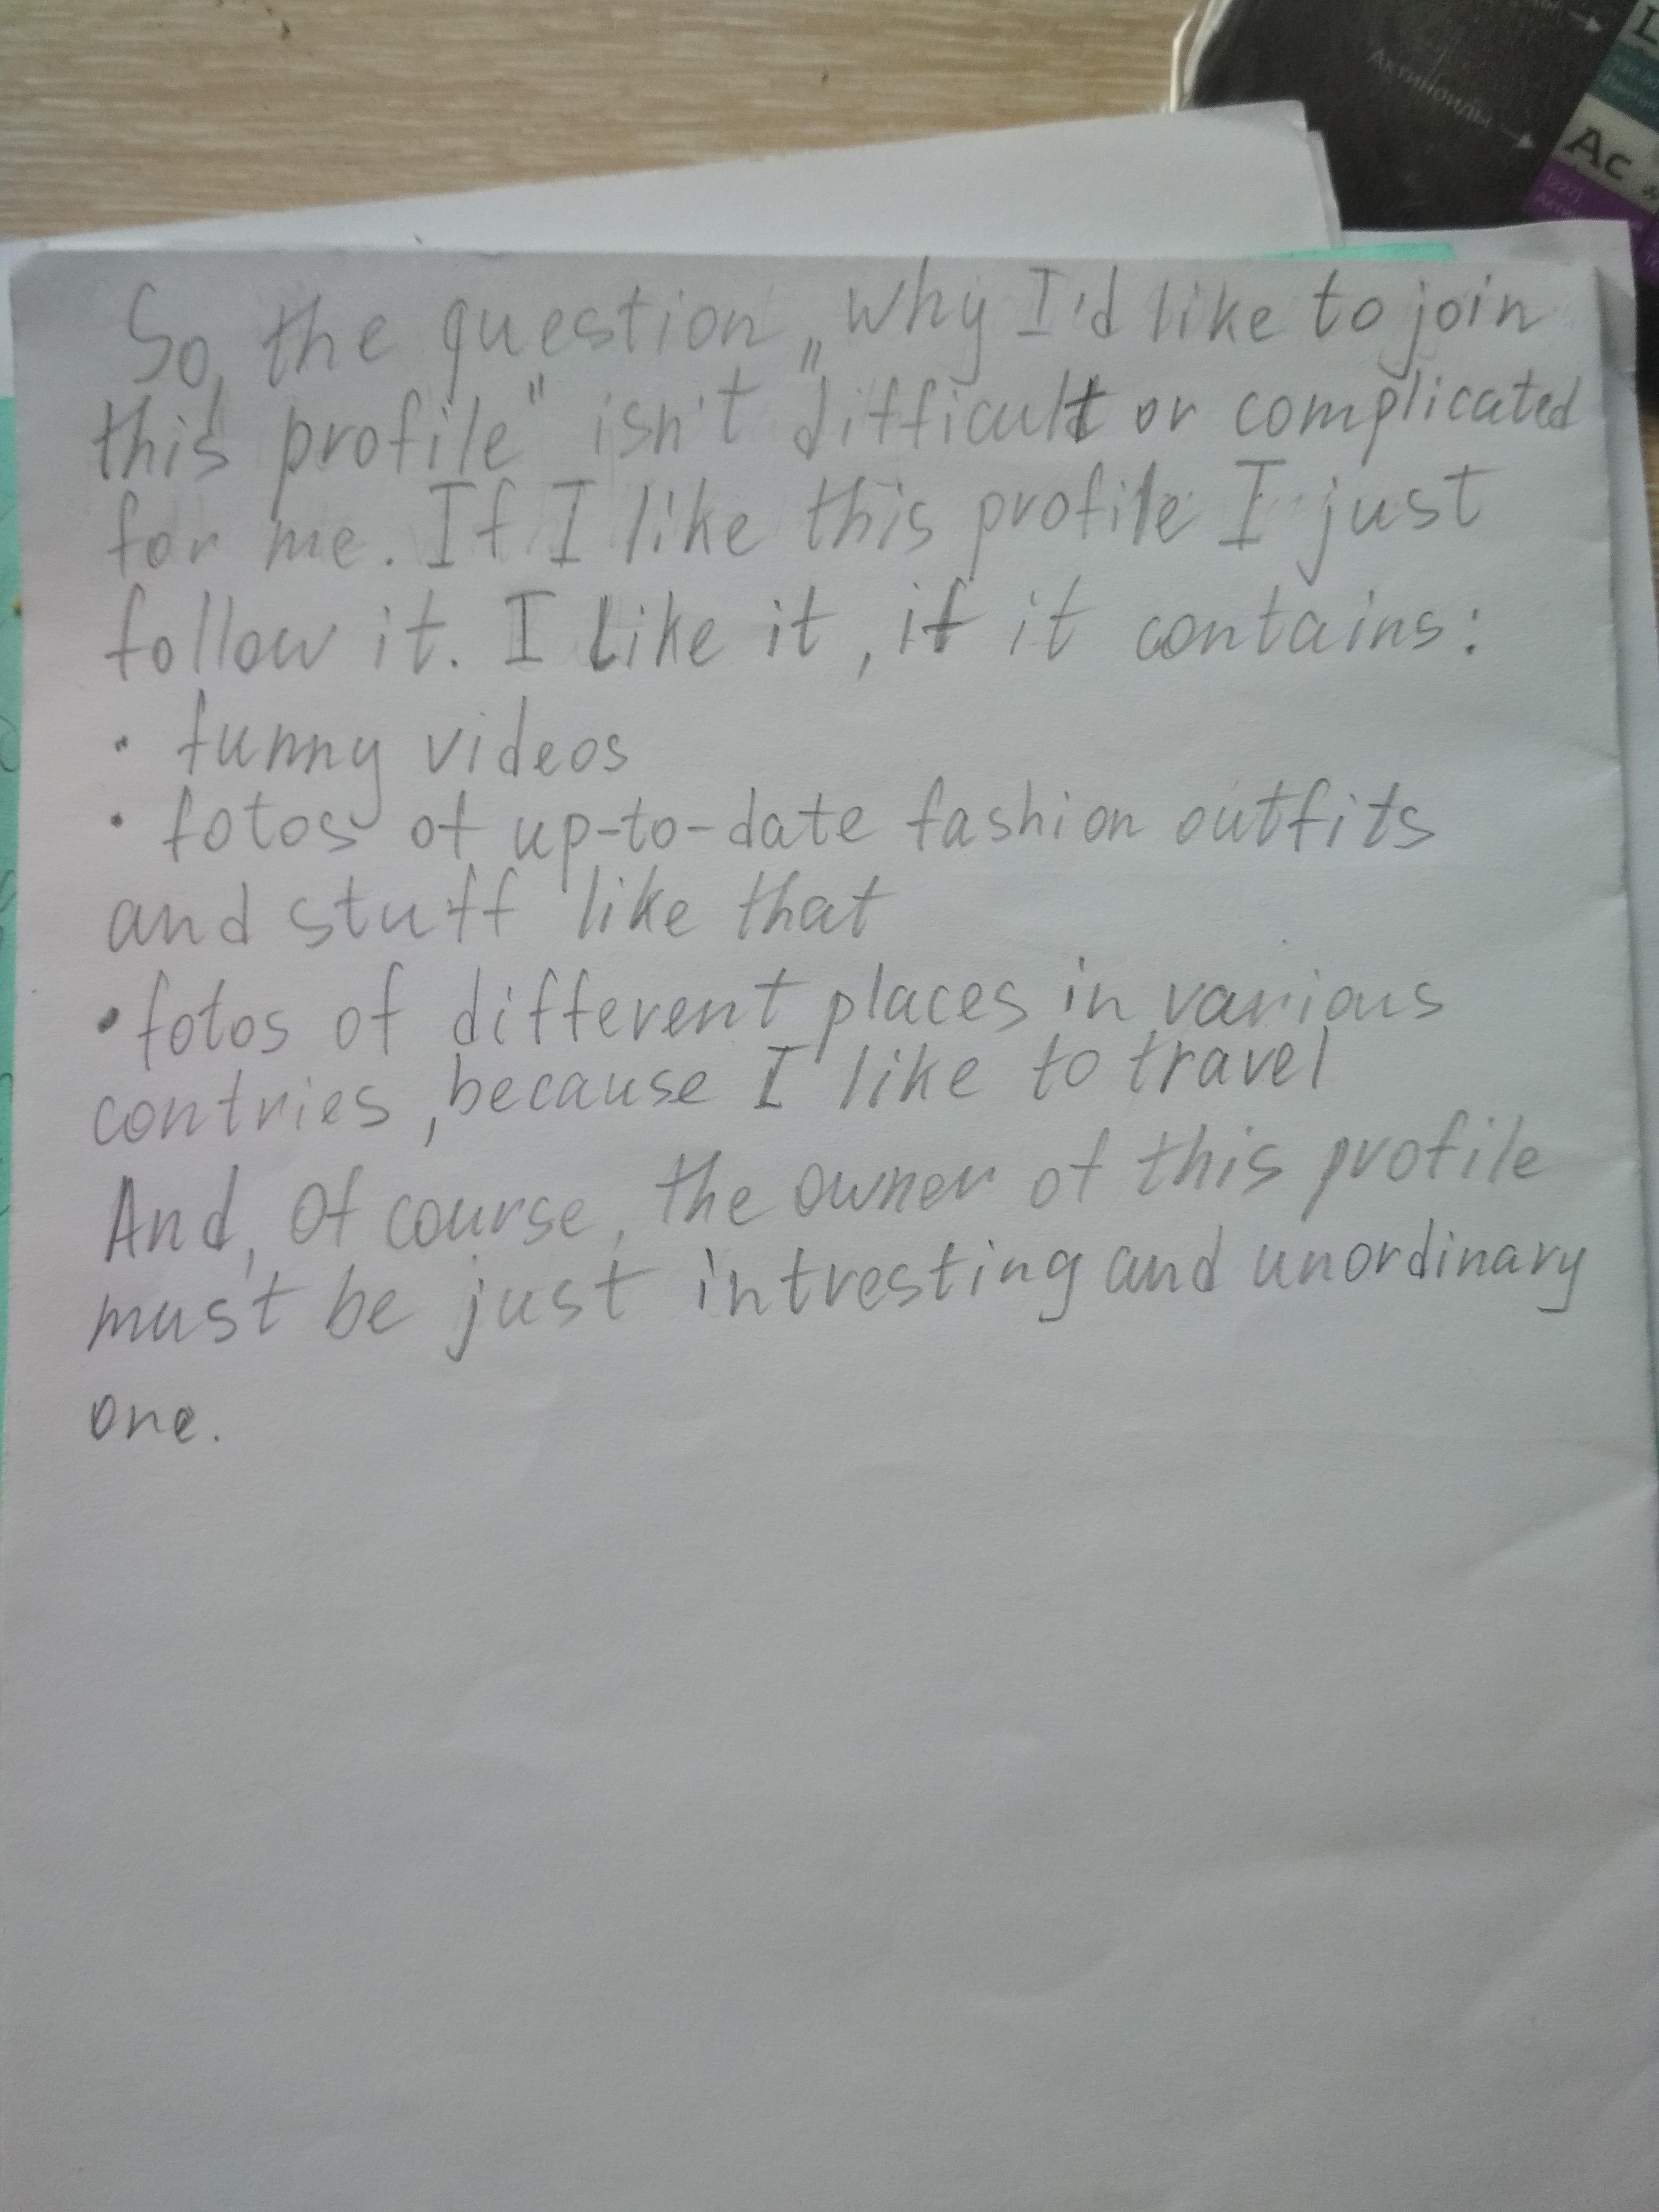 Актиноиды
Ac
So, the question „why I'd like to join
this profile" isn't difficult or complicated
for me. If I like this profile I just
follow it. I like it, if it contains:
· funny videos
· fotos of up-to-date fashion outfits
and stuff like that
· fotos of different places in various
contries, because I like to travel
And, of course, the owner of this profile
must be just intresting and unordinary
one.